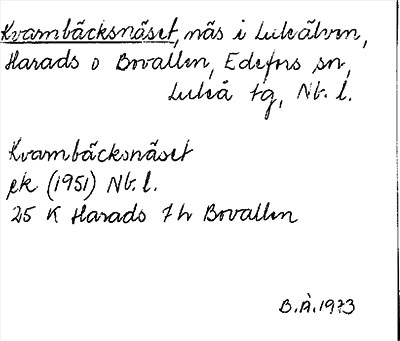 Kvambäcksnäset, näs i Luleälven,
Harads o Bovallen, Edefors sn,
Luleå tg, Nb. l.
Kvambäcksnäset
ek (1951) Nb. l.
25 K Harads 7 h Bovallen
B.Å.1973